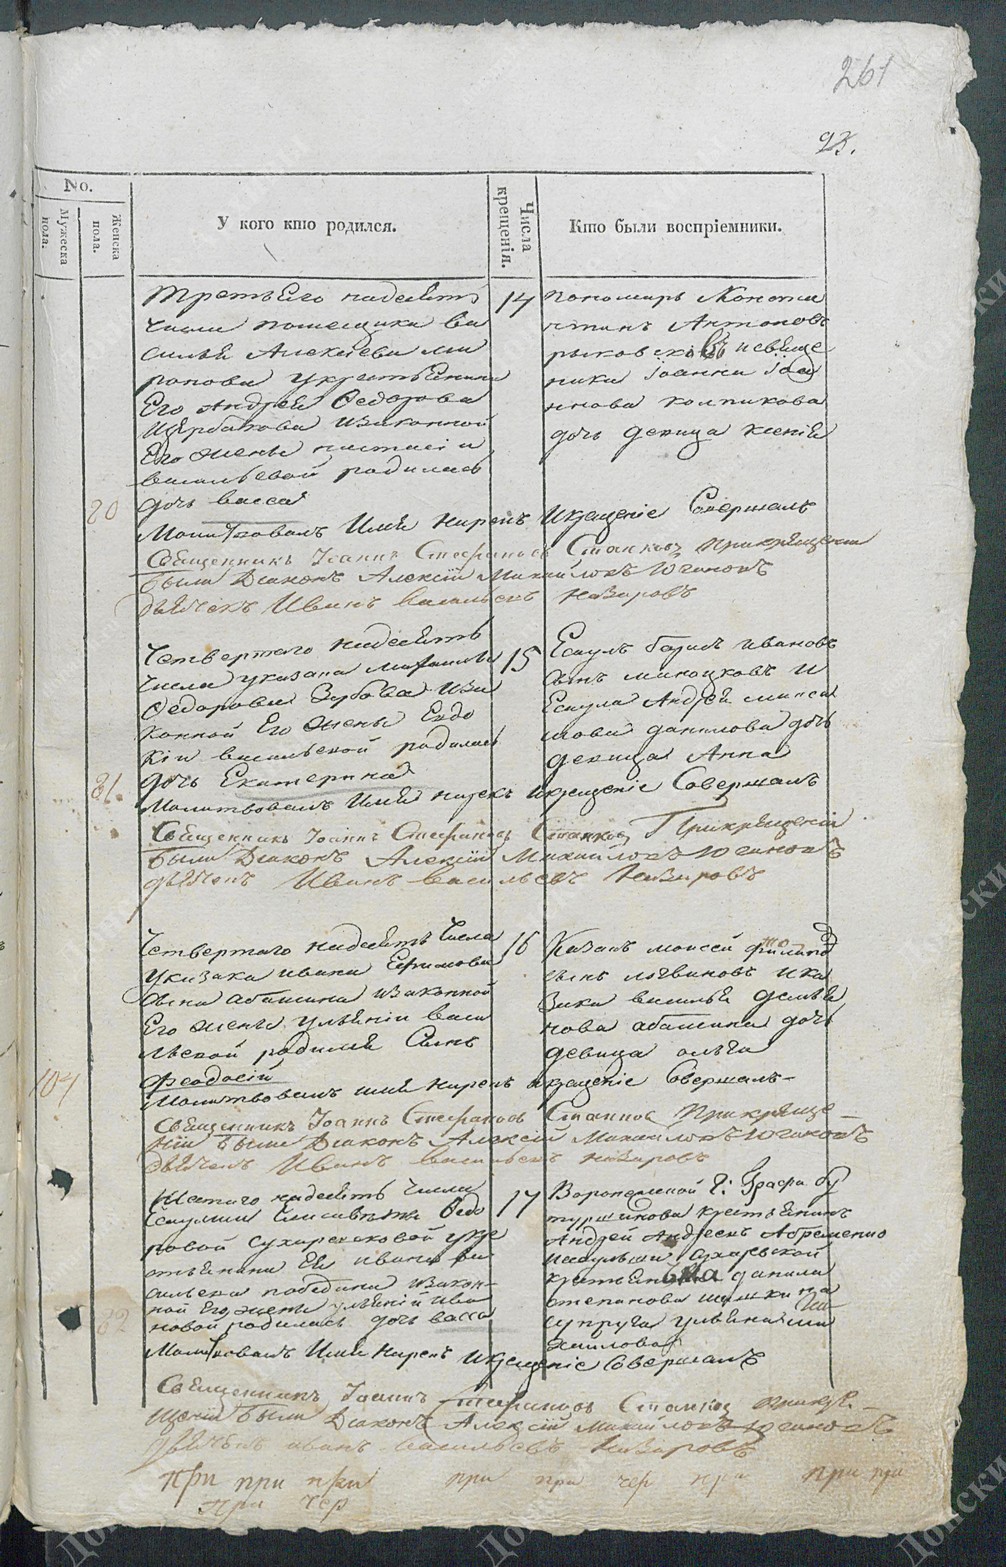 261
93.
No.
Мужеска пола.
Женска пола.
У кого кто родился.
Числа крещенія.
Кто были воспріемники.
Третьего надесять
числа помещика Ва
силья Алексѣева Ми
ронова укрестьенина
Его Андрея Федорова
Щербакова изаконной
Его жены настасіи
васильевой родилась
80 дочь васса
14
пономарь
Антоновъ
исвяще
ника Іоанна Іоа
ннова колпикова
дочь девица ксенія
Молитвовалъ Имя нарекъ икрещеніе Совершалъ
Священникъ Іоаннъ Стефановъ Станковъ прикрещеніи
были Діаконъ Алексій Михайловъ Югановъ
дьячекъ Иванъ васильевъ Назаровъ
Четвертаго надесять
числа указака
Федорова изаконной Его жены Евдо
кіи васильевой родилась
81. дочь Екатерина
15
Есаулъ борисъ ивановъ
сынъ и
Есаула Андрея
данилова дочь
девица Анна
Молитвовалъ Имя нарекъ икрещеніе Совершалъ
Священникъ Іоаннъ Стефановъ Станковъ Прикрещеніи
были Діаконъ Алексій Михайловъ Югановъ
дьячекъ Иванъ васильевъ Назаровъ
Четвертаго надесять Числа
указака ивана Ефимова
сына абашина изаконной
Его жены ульяніи васи
льевой родился Сынъ
104 феодосій
16
Казакъ моисей
сынъ логвиновъ ика
зака василья демья
нова абашина дочь
девица ольга
Молитвовалъ имя нарекъ икрещеніе Совершалъ
Священникъ Іоаннъ Стефановъ Станковъ Прикреще
ніи были Діаконъ Алексій Михайловъ Югановъ
дьячекъ Иванъ васильевъ назаровъ
надесять числа
Есаулши Елисаветы Федо
ровой Сухаревсковой укре
стьянина Ея ивана ва
сильева изакон
ной Его жены ульяніи ива
новой родилась дочь васса
82
17
Воронежской Г: Графа бу
турлинова крестьянинъ
Андрей Андреевъ Абременко
Сухаревской
крестьянина данила
степанова
супруга ульяна ми
хаилова
Молитвовалъ Имя нарекъ икрещеніе Совершалъ
Священникъ Іоаннъ Стефановъ Станковъ прикре
щеніи были Діаконъ Алексій Михайловъ Югановъ
дьячекъ иванъ васильевъ Назаровъ
при при при при при чер при при при
при чер